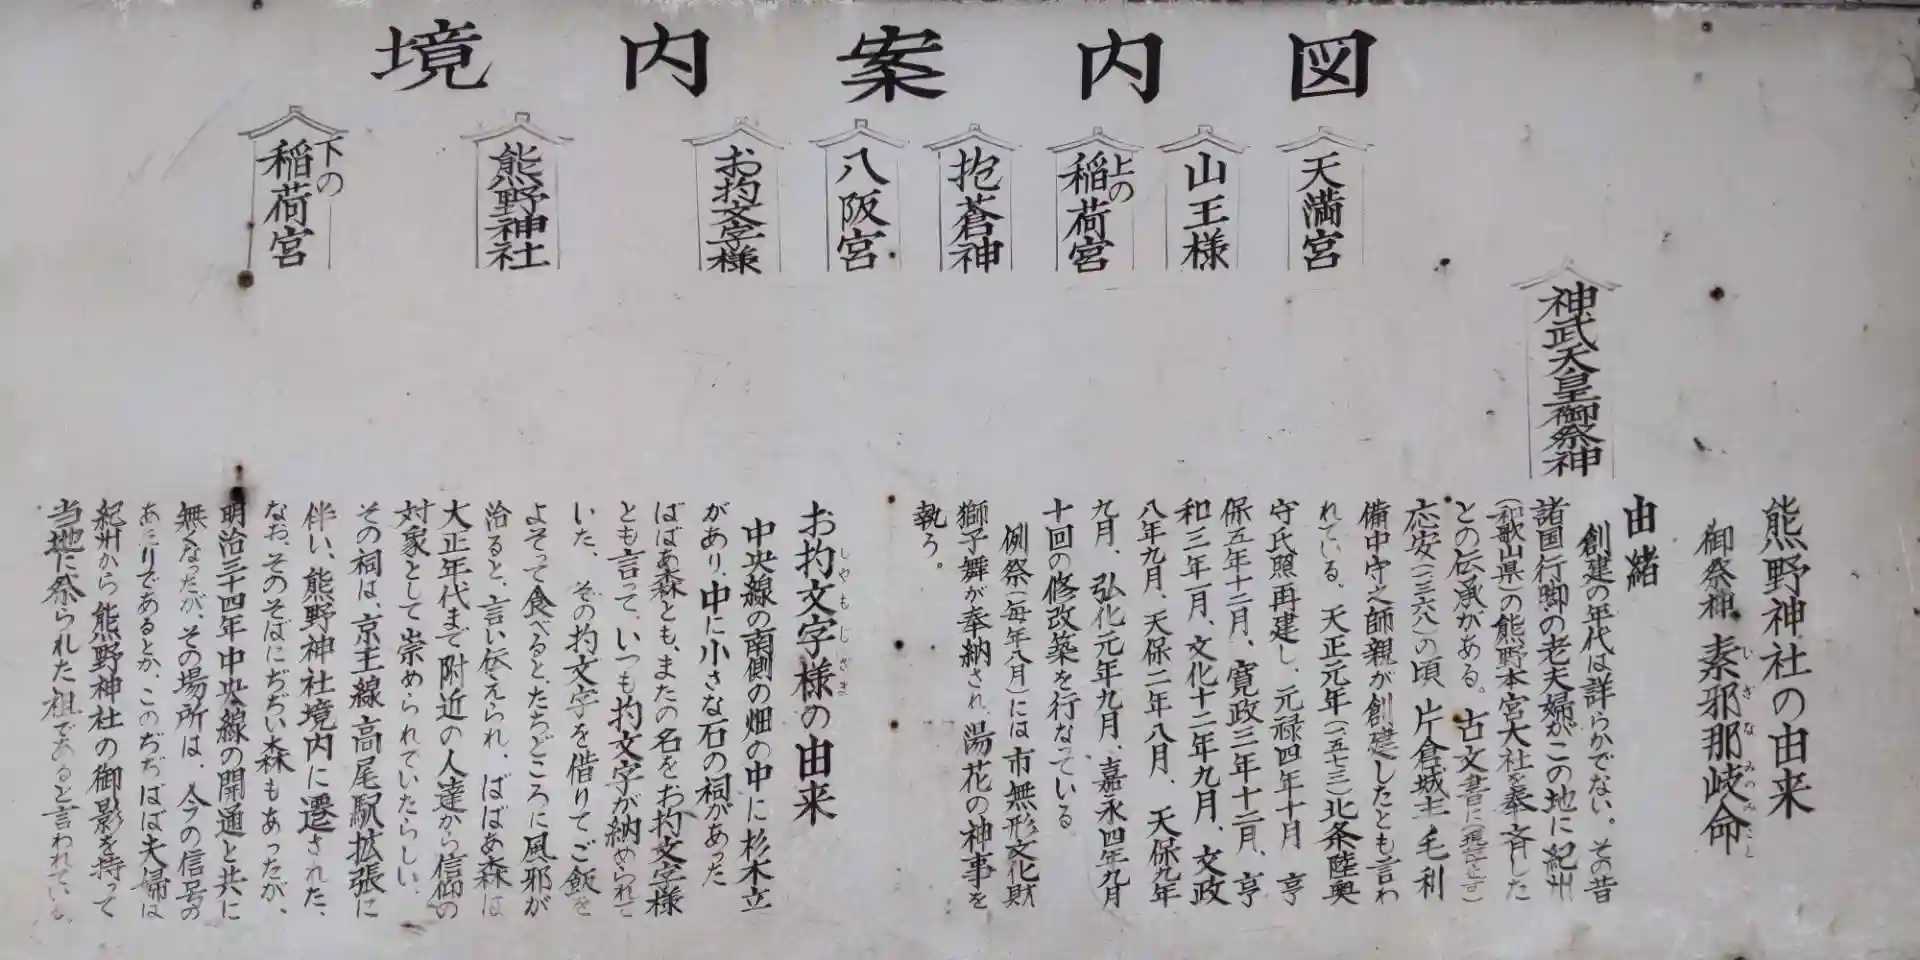 境内案内図
天満宮
山王様
上の
稲荷宮
抱蒼神
八阪宮
お杓文字様
熊野神社
下の
稲荷宮
神武天皇御祭神
熊野神社の由来
御祭神 素邪那岐命
いぎなみのみこと
由緒
創建の年代は詳らかでない。その昔
諸国行脚の老夫婦がこの地に紀州
(和歌山県)の熊野本宮大社を奉斉した
との伝承がある。古文書に
応安(一三六八)の頃 片倉城主 毛利
備中守之師親が創建したとも言わ
れている。天正元年(一五七三)北条陸奥
守氏照再建し、元禄四年十月 享
保五年十二月、寛政三年十二月、享
和三年一月、文化十二年九月、文政
八年九月、天保二年八月、天保九年
九月、弘化元年九月、嘉永四年九月
十回の修改築を行なっている
例祭(毎年八月)には市無形文化財
獅子舞が奉納され、湯花の神事を
執ろ。
お杓文字様の由来
しゃもじさま
中央線の南側の畑の中に杉木立
があり、中に小さな石の祠があった
ばばあ森とも、またの名をお杓文字様
とも言って、いつも杓文字が納められて
いた、その杓文字を借りてご飯を
よそって食べると、たちどころに風邪が
治ると、言い伝えられ、ばばあ森は
大正年代まで附近の人達から信仰の
対象として崇められていたらしい、
その祠は、京王線高尾駅拡張に
伴い、熊野神社境内に遷された、
なお、そのそばにぢぢい森もあったが、
明治三十四年中央線の開通と共に
無くなったが、その場所は、今の信号の
あたりであるとか、このぢぢばば夫婦は
紀州から熊野神社の御影を持って
当地に祭られた祖であると言われている。